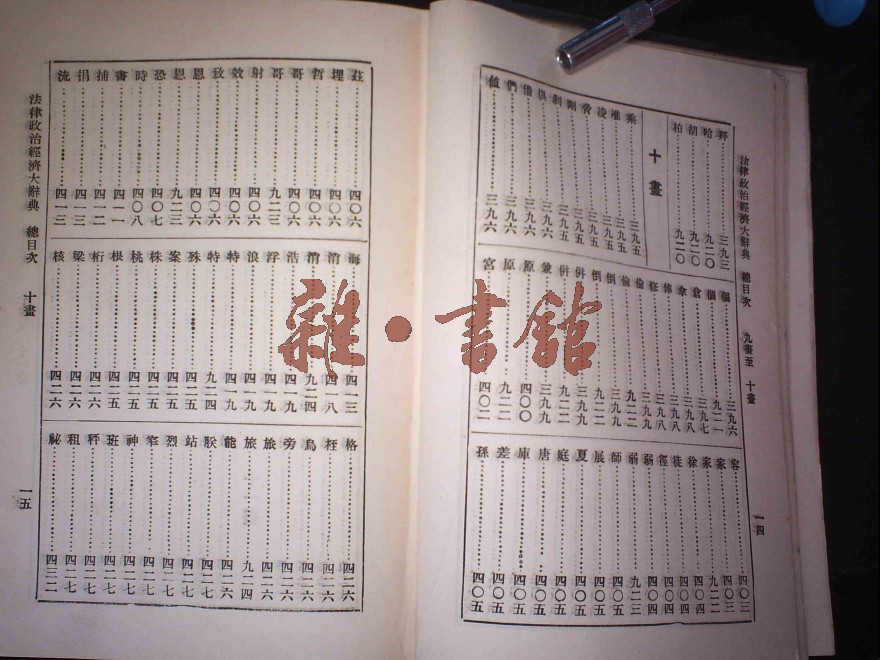 法律政治經濟大辭典 總目次 九畫至十畫 一四
哈 九二〇
胡 九二〇
柏 九二〇
十畫
乘 三九五
准 三九五
凌 三九五
脅 三九五
剛 三九五
剝 三九六
俱 三九六
借 三九六
們 三九六
值 三九六
個 三九六
個 九二一
倉 三九七
傘 三九八
俸 三九八
修 三九九
倫 九二二
倫 三九九
倒 三九九
倒 九二二
併 三九九
併 九二二
兼 三九九
原 四〇〇
原 九二二
宮 四〇二
容 四〇三
家 四〇三
家 九二二
徐 四〇四
徒 四〇四
徑 四〇四
弱 四〇四
弱 九二三
師 四〇五
展 四〇五
夏 四〇五
庭 四〇五
唐 四〇五
庫 四〇五
差 四〇五
孫 四〇五
莊 四〇六
埋 四〇六
哲 四〇六
哥 四〇六
哥 九二三
射 四〇六
效 四〇六
致 四〇六
恩 四〇六
恩 九二三
恐 四〇七
時 四〇八
書 四一一
捕 四一二
捐 四一三
流 四一三
海 四一三
消 四一八
消 九二四
浩 四一九
浮 四一九
浪 四一九
特 四一九
特 九二四
殊 四二五
案 四二五
株 四二五
桃 四二五
根 四二五
桁 四二六
梁 四二六
核 四二六
格 四二六
桎 四二六
烏 四二六
旁 四二六
旅 四二六
旅 九二四
能 四二六
朕 四二七
站 四二七
烈 四二七
窄 四二七
神 四二七
班 四二七
秤 四二七
租 四二七
祕 四三二
法律政治經濟大辭典 總目次 十畫 一五
雜·書館